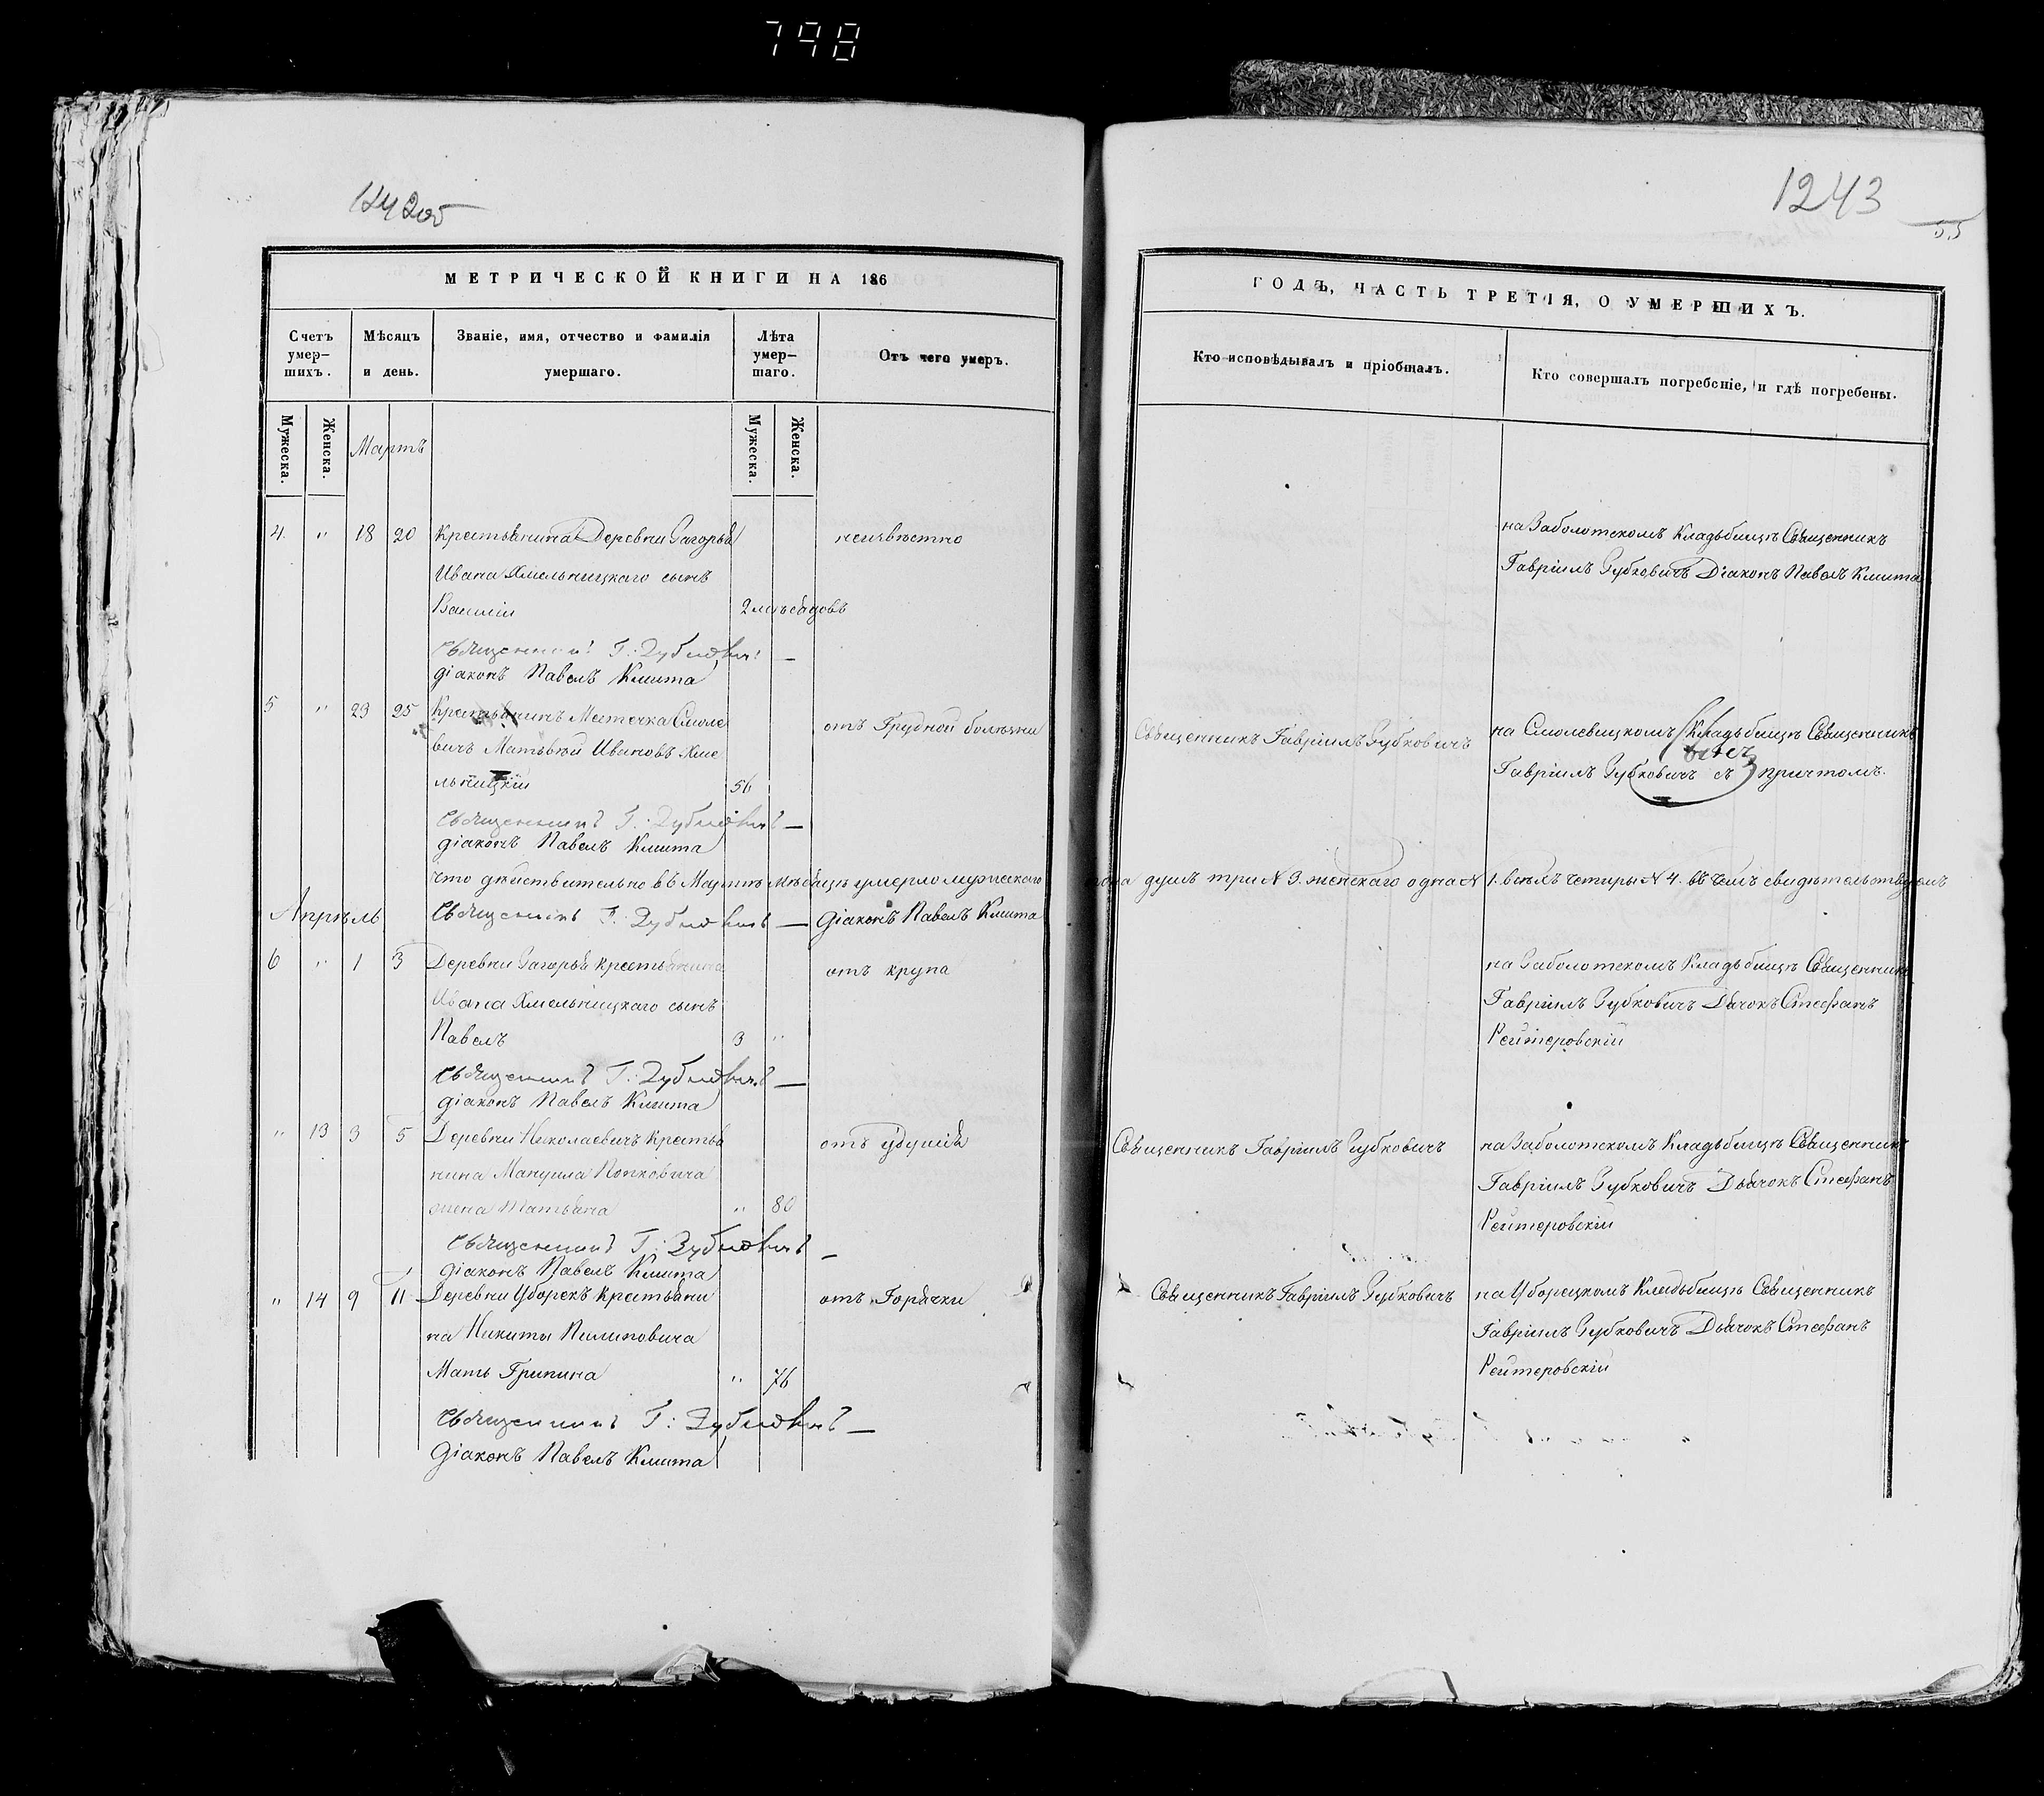 798
1243
55
МЕТРИЧЕСКОЙ КНИГИ НА 186
ГОДЪ, ЧАСТЬ ТРЕТІЯ, О УМЕРШИХЪ.
Счетъ умер-шихъ.
Мѣсяцъ и день.
Званіе, имя, отчество и фамилія умершаго.
Лѣта умер-шаго.
Отъ чего умеръ.
Кто исповѣдывалъ и пріобщалъ.
Кто совершалъ погребеніе, и гдѣ погребены.
Мужеска.
Женска.
Мартъ
Мужеска.
Женска.
4 " 18 20 Крестьянина Деревни Загорья неизвѣстно на Заболотскомъ Кладьбищѣ Священникъ
Ивана Хмельницкаго сынъ Гавріилъ Зубковичъ Діаконъ Павелъ Кмита
Василій 2
Священникъ Г: Зубковичъ —
діаконъ Павелъ Кмита
5 " 23 25 Крестьянинъ Местечка Смоле отъ Грудной болѣзни Священникъ Гавріилъ Зубковичъ на Смолевицкомъ Кладьбищѣ Священникъ
вичъ Матьвѣй Ивановъ Хме Гавріилъ Зубковичъ съ причтомъ.
льницкій 56
Священникъ Г: Зубковичъ —
діаконъ Павелъ Кмита
что дѣйствительно въ Мартѣ Мѣсяцѣ умерло мужескаго пола душъ три № 3. женскаго одна № 1. всѣхъ четыры № 4. въ чемъ свидѣтельствуемъ
Апрѣль Священникъ Г: Зубковичъ — Діаконъ Павелъ Кмита
6 " 1 3 Деревни Загорья крестьянина отъ крупа на Заболотскомъ Кладьбищѣ Священникъ
Ивана Хмельницкаго сынъ Гавріилъ Зубковичъ Дьячокъ Стефанъ
Павелъ 3 " Рейтеровскій
Священникъ Г: Зубковичъ —
діаконъ Павелъ Кмита
" 13 3 5 Деревни Николаевичъ Крестья отъ удушія Священникъ Гавріилъ Зубковичъ на Заболотскомъ Кладьбищѣ Священникъ
нина Мануила Попковича Гавріилъ Зубковичъ Дьячокъ Стефанъ
жена Татьяна " 80 Рейтеровскій
Священникъ Г: Зубковичъ —
діаконъ Павелъ Кмита
" 14 9 11 Деревни Уборекъ Крестьяни отъ Горячки Священникъ Гавріилъ Зубковичъ на Уборецкомъ Кладьбищѣ Священникъ
на Никиты Пилиповича Гавріилъ Зубковичъ Дьячокъ Стефанъ
Мать Грипина " 76 Рейтеровскій
Священникъ Г: Зубковичъ —
Діаконъ Павелъ Кмита